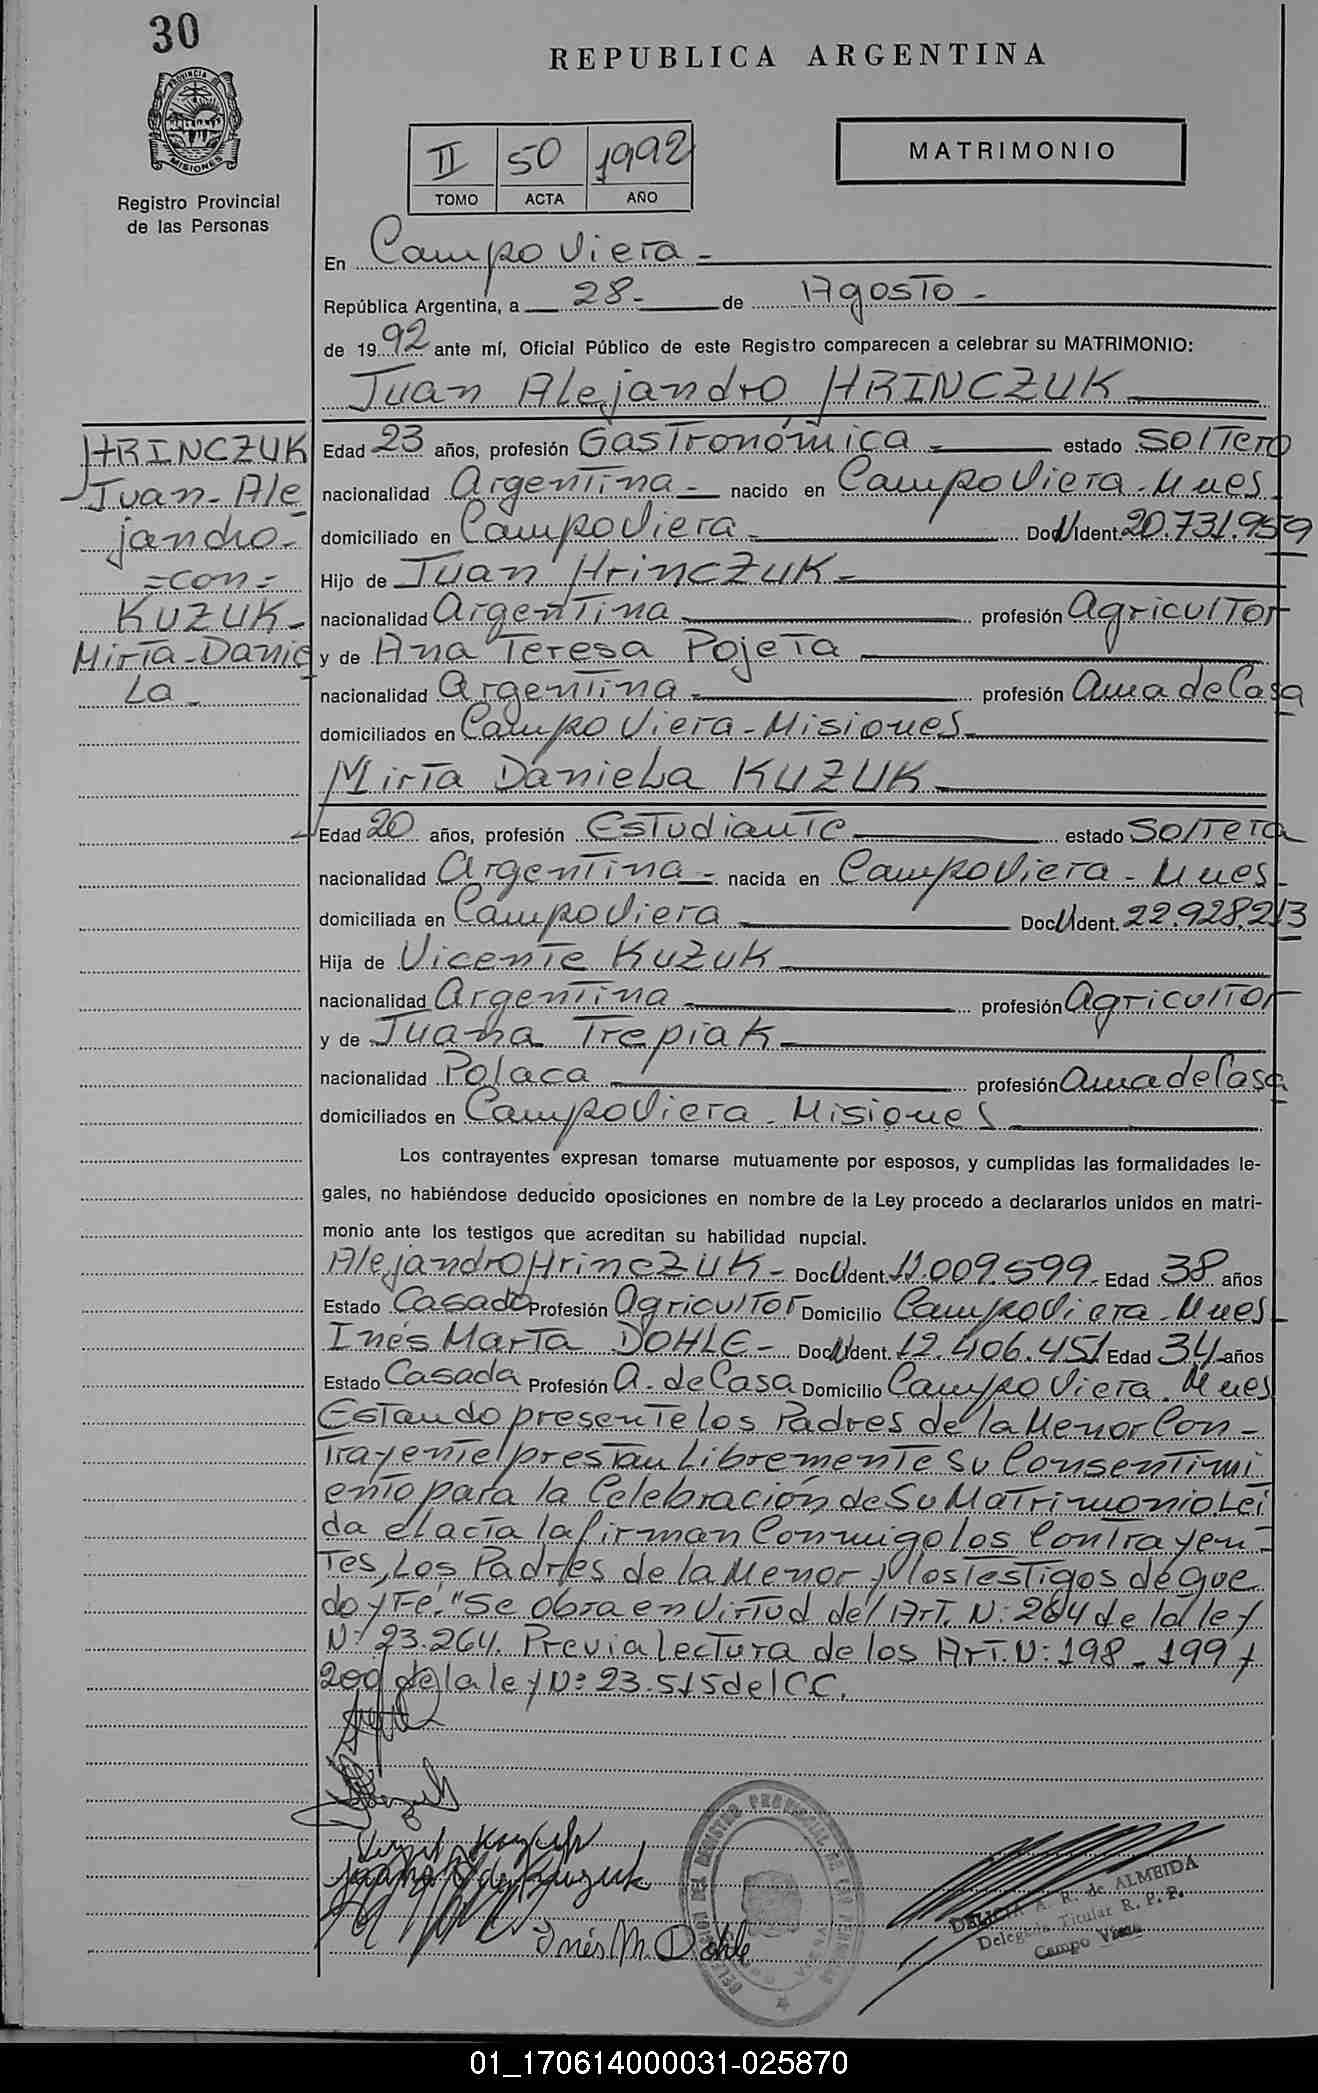 30
REPUBLICA ARGENTINA
PROVINCIA DE
MISIONES
Registro Provincial
de las Personas
II 50 1992
TOMO ACTA AÑO
MATRIMONIO
En Campo Viera -
República Argentina, a 28- de Agosto -
de 1992 ante mí, Oficial Público de este Registro comparecen a celebrar su MATRIMONIO:
Juan Alejandro HRINCZUK
HRINCZUK
Juan-Ale
jandro-
=con=
KUZUK-
Mirta-Danie
La-
Edad 23 años, profesión Gastronómica - estado Soltero
nacionalidad Argentina - nacido en Campo Viera - Mnes-
domiciliado en Campo Viera - Doc U Ident. 20.731.959
Hijo de Juan Hrinczuk -
nacionalidad Argentina profesión Agricultor
y de Ana Teresa Pojeta
nacionalidad Argentina - profesión Ama de Casa
domiciliados en Campo Viera - Misiones -
Mirta Daniela KUZUK
Edad 20 años, profesión Estudiante estado Soltera
nacionalidad Argentina - nacida en Campo Viera - Mnes-
domiciliada en Campo Viera Doc U Ident. 22.928.213
Hija de Vicente Kuzuk
nacionalidad Argentina profesión Agricultor
y de Juana Trepiak
nacionalidad Polaca profesión Ama de Casa
domiciliados en Campo Viera - Misiones
Los contrayentes expresan tomarse mutuamente por esposos, y cumplidas las formalidades le-
gales, no habiéndose deducido oposiciones en nombre de la Ley procedo a declararlos unidos en matri-
monio ante los testigos que acreditan su habilidad nupcial.
Alejandro Hrinczuk - Doc U Ident. 11.009.599- Edad 38 años
Estado Casado Profesión Agricultor Domicilio Campo Viera - Mnes-
Inés Marta DOHLE - Doc U Ident. 12.406.451 Edad 34 años
Estado Casada Profesión A. de Casa Domicilio Campo Viera. Mnes
Estando presente los Padres de la Menor Con-
trayente prestan Libremente Su Consentimi
ento para la Celebración de Su Matrimonio. Leí
da el acta la firman Conmigo los Contrayen-
tes, Los Padres de la Menor y los testigos de que
doy Fé. "Se obra en Virtud del Art. N: 264 de la ley
N: 23.264. Previa Lectura de los Art. N: 198 - 199 y
200 de la ley N: 23.515 del CC.
Inés M Dohle
DELICIA A. R. de ALMEIDA
Delegada Titular R. P. P.
Campo Viera
01_170614000031-025870